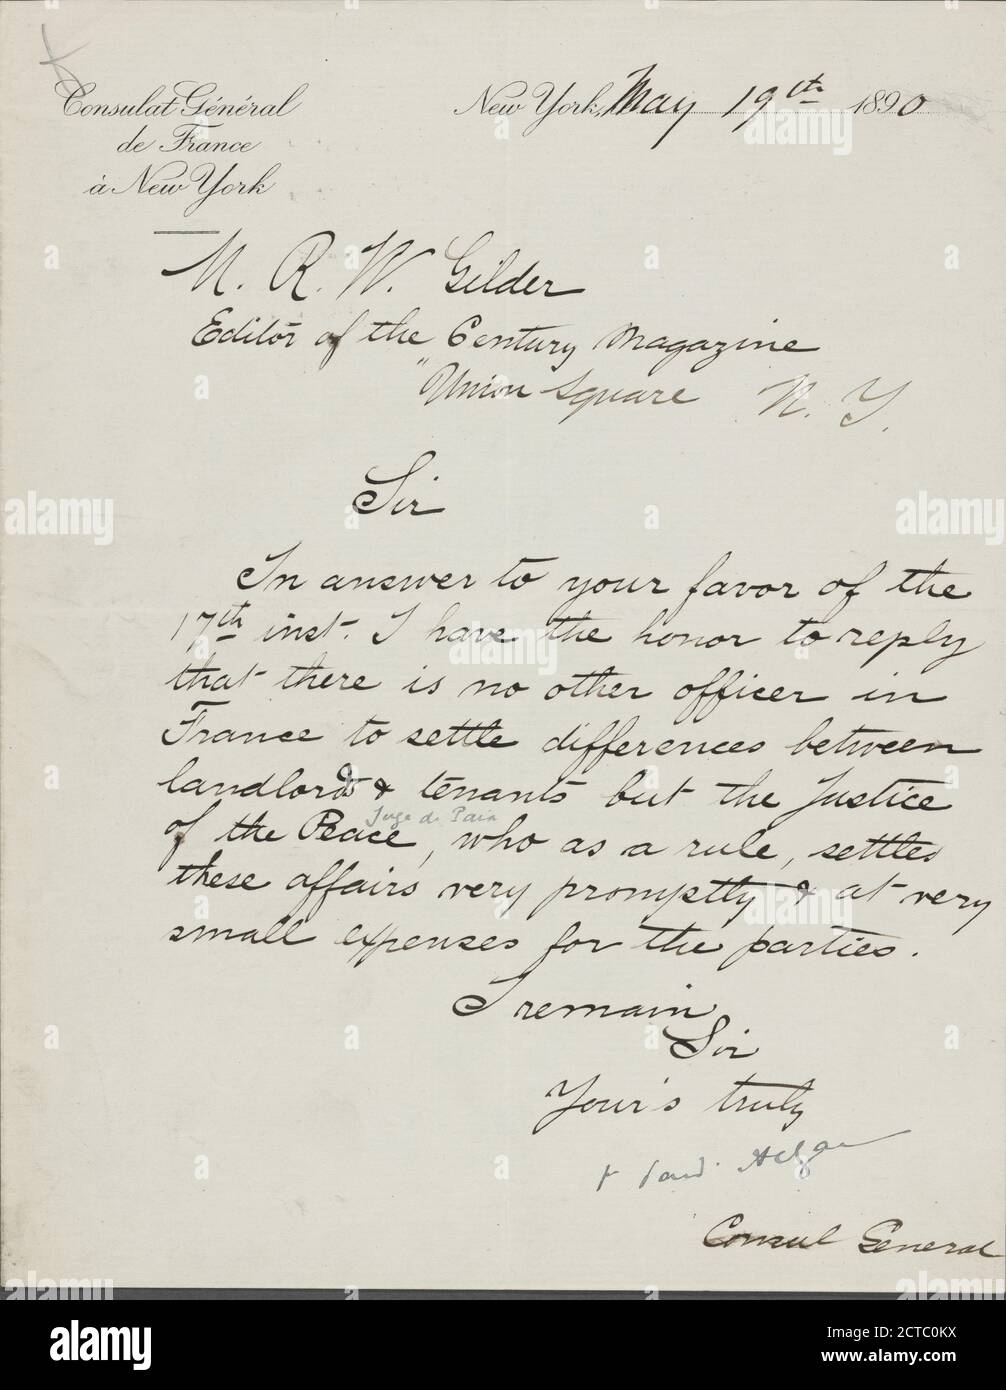 Consulat Général
de France
à New York
New York, May 19th 1890
M. R. W. Gilder
Editor of the Century Magazine
"Union Square N. Y.
Sir
In answer to your favor of the
17th inst. I have the honor to reply
that there is no other officer in
France to settle differences between
landlords & tenants but the Justice
Juge de Paix
of the Peace, who as a rule, settles
these affairs very promptly & at very
small expenses for the parties.
I remain
Sir
Your's truly
Consul General
alamy
Image ID: 2CTC0KX
www.alamy.com